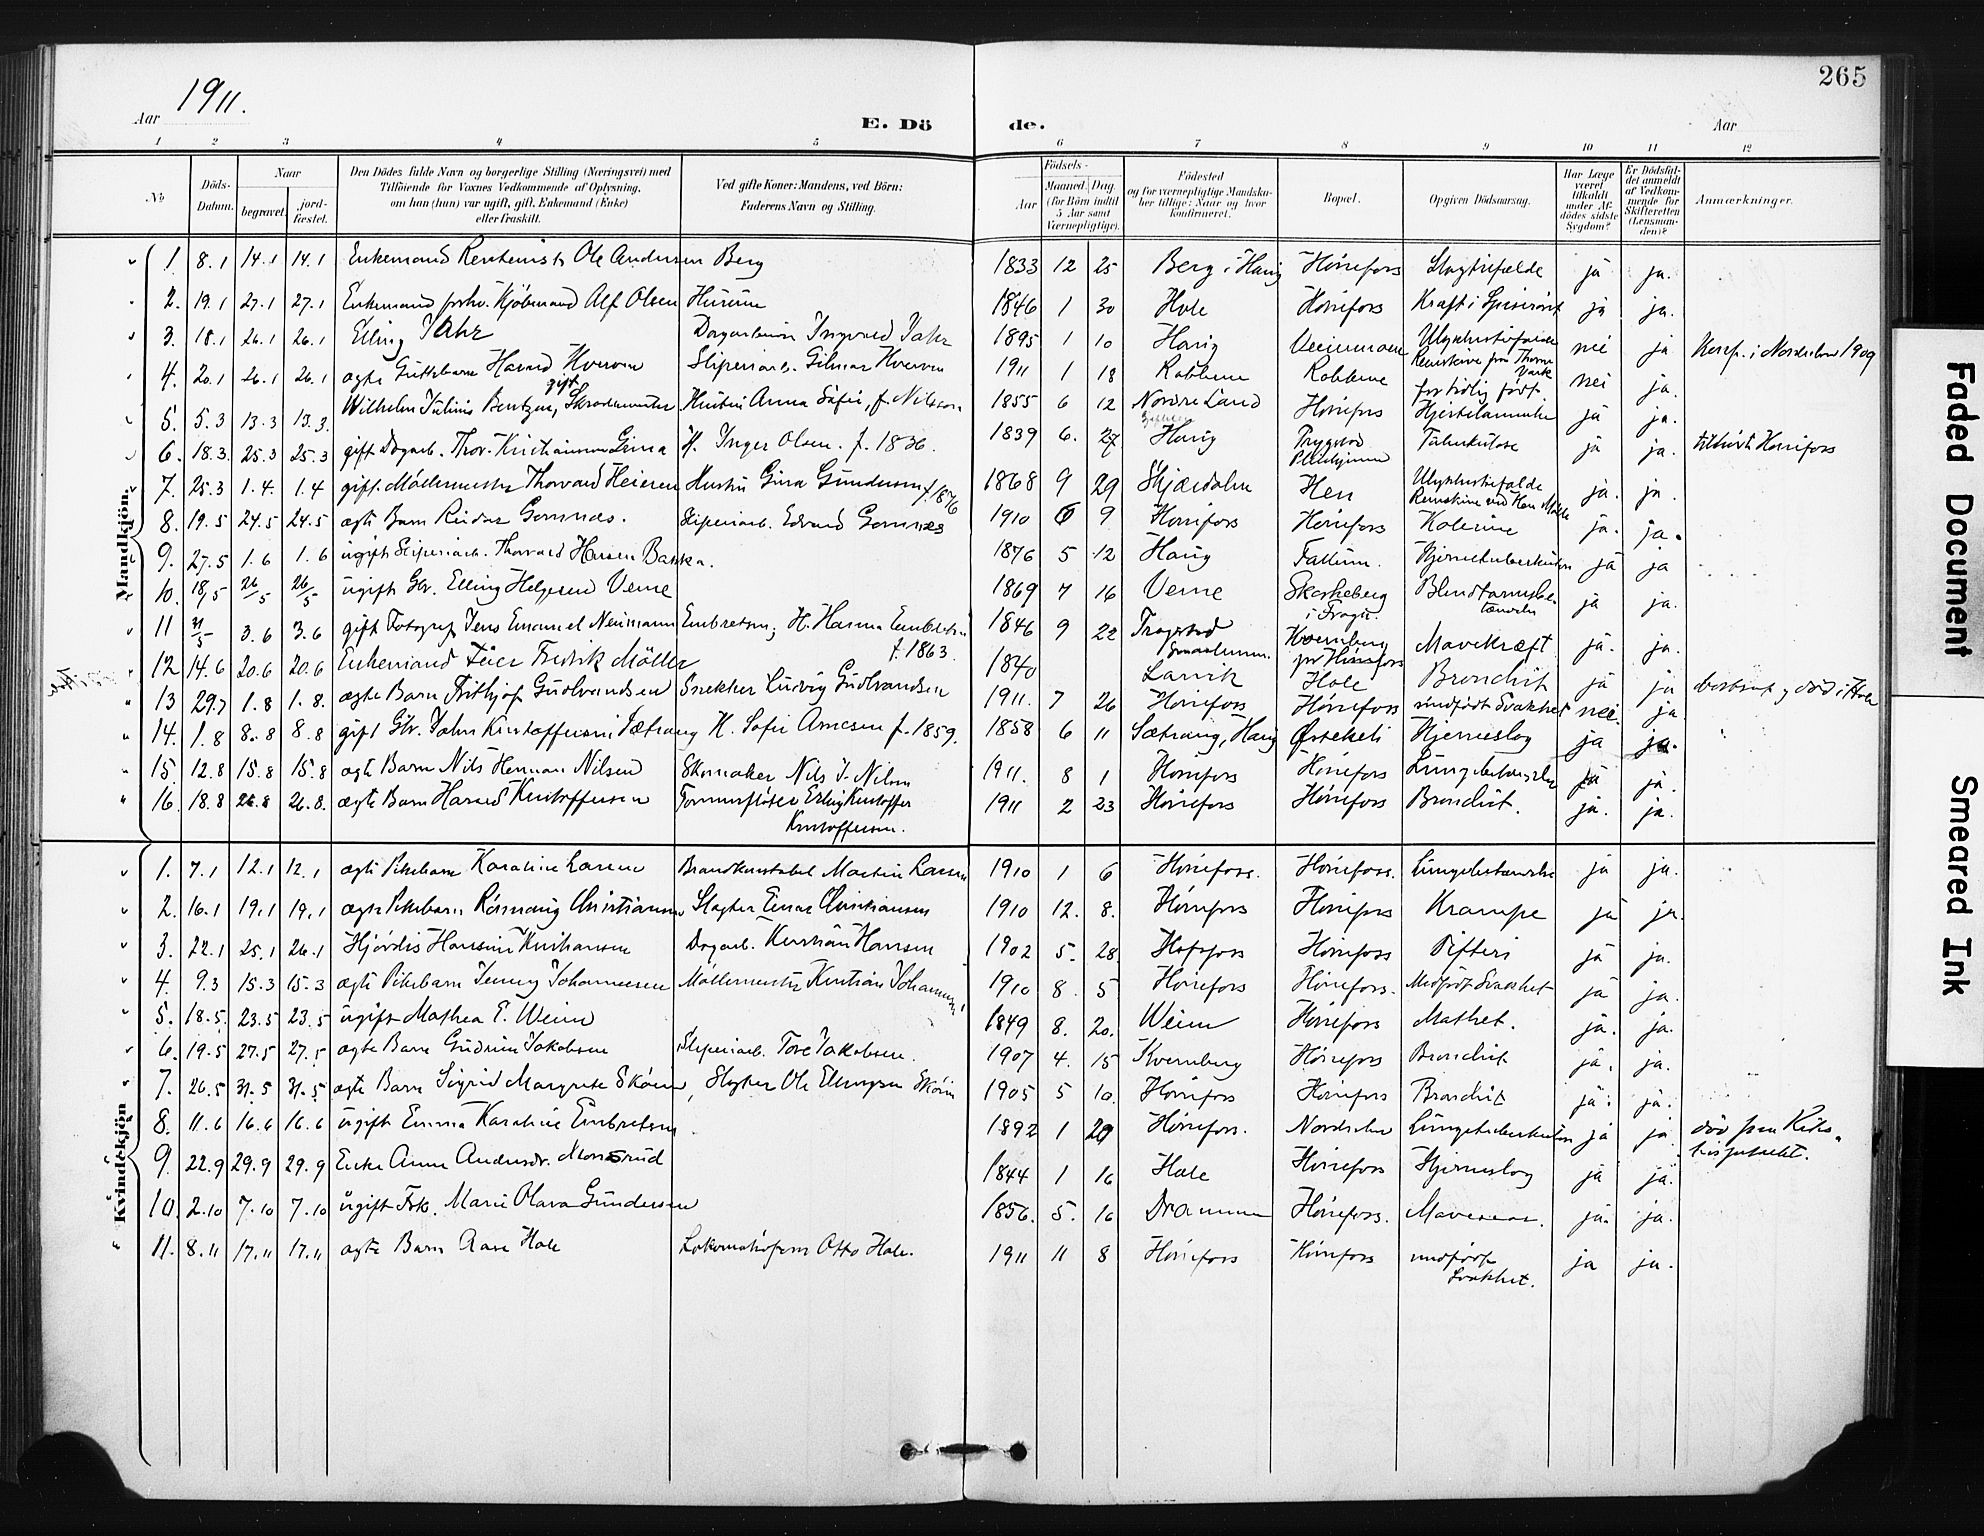 265
1911.
Aar
E. Dö de.
Aar
1 2 3 4 5 6 7 8 9 10 11 12
No
Döds-Datum.
Naar
begravet.
jord-fæstet.
Den Dödes fulde Navn og borgerlige Stilling (Næringsvei) med
Tilföiende for Voxnes Vedkommende af Oplysning,
om han (hun) var ugift, gift, Enkemand (Enke)
eller fraskilt.
Ved gifte Koner: Mandens, ved Börn:
Faderens Navn og Stilling.
Födsels-
Aar
Maaned. Dag.
(for Börn indtil
5 Aar samt
Værnepligtige).
Födested
og for værnepligtige Mandskaber tillige: Naar og hvor
konfirmeret.
Bopæl.
Opgiven Dödsaarsag.
Har Læge
været
tilkaldt
under Afdödes sidste
Sygdom?
Er Dödsfaldet anmeldt
af Vedkommende for
Skifteretten
(Lensmanden)?
Anmærkninger.
Mandkjön.
1. 8.1 14.1 14.1 Enkemand Rentenist Ole Andersen Berg 1833 12 25 Berg i Haug Hönefoss Slagtilfælde ja ja.
2. 19.1 27.1 27.1 Enkemand forhv. Kjöbmand Alf Olsen Hurum 1846 1 30 Hole Hönefoss Kræft i Spiserör ja ja.
3. 18.1 26.1 26.1 Elling Jahr Dagarbeider Ingvard Jahr 1895 1 10 Haug Veienmoen Ulykkestilfælde nei ja Konf. i Norderhov 1909
4. 20.1 26.1 26.1 ægte Guttebarn Harald Hverven Sliperiarb. Hilmar Hverven 1911 1 18 Rabberne Rabberne for tidlig födt. nei ja.
5. 5.3 13.3 13.3 Wilhelm Julius Bentzen, gift Skrædermester Hustru Anna Sofie, f. Nilsen 1855 6 12 Nordre Land Hönefoss Hjertelammelse ja ja.
6. 18.3. 25.3 25.3 gift Dagarb. Thor. Kristiansen H. Inger Olsen. f. 1836. 1839 6. 27 Haug Trygstad Pleiehjem Tuberkulose ja ja. tilhört Hönefoss
7. 25.3 1.4. 1.4 gift. Möllemester Thorvard Heieren Hustru Gina Gundersen f. 1876 1868 9 29 Skjærdalen Hen Ulykkestilfælde ja. ja.
8. 19.5 24.5 24.5 ægte Barn Reidar Gomnæs. Sliperiarb. Edvard Gomnæs 1910 9 Hönefoss Hönefoss Kolerine ja. ja.
9. 27.5 1.6 1.6 ugift Sliperiarb. Thorvald Hansen Bakka. 1876 5 12 Haug Fallum. Hjernetuberkulose ja ja
10. 18/5 26/5 26/5 ugift Gbr. Elling Helgesen Verne 1869 7 16 Verne Skarheberg i Frogn. Blindtarmsbetændelse ja ja.
11 31/5 3.6 3.6 gift Fotograf Jens Emanuel Neumann Embretsen; H. Hanna Embretsen f. 1863. 1846 9 22 Trøgstad Smaalenene. pr Hönefoss Mavekræft ja. ja.
12 14.6 20.6 20.6 Enkemand Peier Fredrik Möller 1840 Larvik Hole Bronchit ja ja bosat og död i Hole
13 29.7 1.8 1.8. ægte Barn Frithjof Gulbrandsen Snekker Ludvig Gulbrandsen 1911. 7 26 Hönefoss Hönefoss medfödt Svakhet nei. ja.
14. 1.8 8.8 8.8 gift Gbr. John Kristoffersen Sætrang H. Sofie Arnesen f. 1859. 1858 6 11 Sætrang, Haug Østekeli Hjerneslag ja ja.
15. 12.8 15.8 15.8 ægte Barn Nils Herman Nilsen Skomaker Nils J. Nilsen 1911. 8 1 Hönefoss Hönefoss Lungebetændelse ja ja.
16. 18.8 26.8 26.8. ægte Barn Harald Kristoffersen Tømmerfløter Erling Kristoffer Kristoffersen. 1911 2 23 Hönefoss Hönefoss Bronchit. ja. ja.
Kvindekjön
1. 7.1 12.1 12.1 ægte Pikebarn Karoline Larsen Brandkonstabel Martin Larsen 1910 1 6 Hönefoss. Hönefoss. Lungebetændelse ja ja.
2. 16.1 19.1 19.1 ægte Pikebarn Rösnaug Christiansen Slagter Einar Christiansen 1910 12. 8. Hönefoss Hönefoss Krampe ja ja.
3. 22.1 25.1 26.1 Hjördis Hansine Kristiansen Dagarb. Kristian Hansen 1902 5. 28. Hofsfoss Hönefoss Difteri ja ja.
4. 9.3 15.3 15.3 ægte Pikebarn Jenny Johannesen Möllemester Kristian Johannesen 1910 8. 5 Hönefoss Hönefoss. Medfödt Svakhet ja ja.
5. 18.5. 23.5 23.5 ugift Mathea E. Weien 1849 8. 20. Weien Hönefoss Mathet. ja. ja.
6. 19.5 27.5 27.5 ægte Barn Gudrun Jakobsen Sliperiarb. Tore Jakobsen. 1907 4. 15 Kvernberg Hönefoss Bronchit ja. ja.
7. 26.5 31.5 31.5 ægte Barn Sigrid Margrete Sköien, Slagter Ole Ellingsen Sköien 1905 5 10. Hönefoss Hönefoss Bronchit ja. ja.
8. 11.6 16.6 16.6 ugift Emma Karoline Embretsen 1892 1 29 Hönefoss. Norderhov Lungetuberkulose ja ja. död paa Rikshospitalet.
9. 22.9 29.9 29.9 Enke Anne Andersdr. Monsrud 1844 1 16 Hole Hönefoss Hjerneslag ja ja.
10. 2.10 7.10 7.10 ugift Frk. Marie Olava Gundersen 1856. 5. 16 Drammen Hönefoss. ja. ja.
11. 8.11 17.11 17.11 ægte Barn Aase Hole Lokomotivfører Otto Hole. 1911 11 8 Hönefoss Hönefoss medfödt Svakhet. ja ja.
Faded Document
Smeared Ink